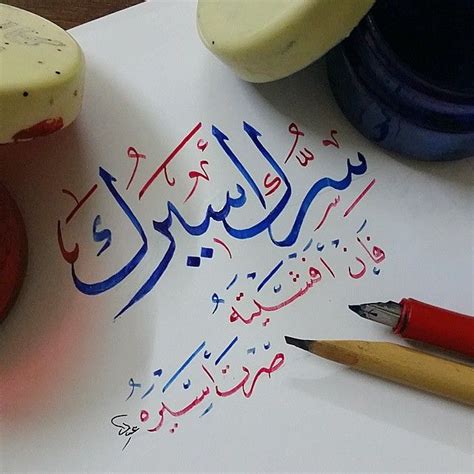 سِرُّك أسيرُك
فَإنْ أفْشَيْتَه
صِرْتَ أَسِيْرَهُ